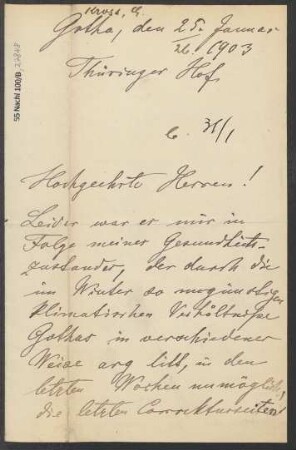 Gotha, den 25. Januar
26. 1903
Thüringer Hof.
b. 31/1
Hochgeehrte Herren!
Leider war es mir in
Folge meiner Gesundheits-
zustandes, der durch die
im Winter so ungünstigen
klimatischen Verhältnisse
Gothas in verschiedener
Weise arg litt, in den
letzten Wochen unmöglich,
die letzten Correkturseiten
55 Nachl 100/B